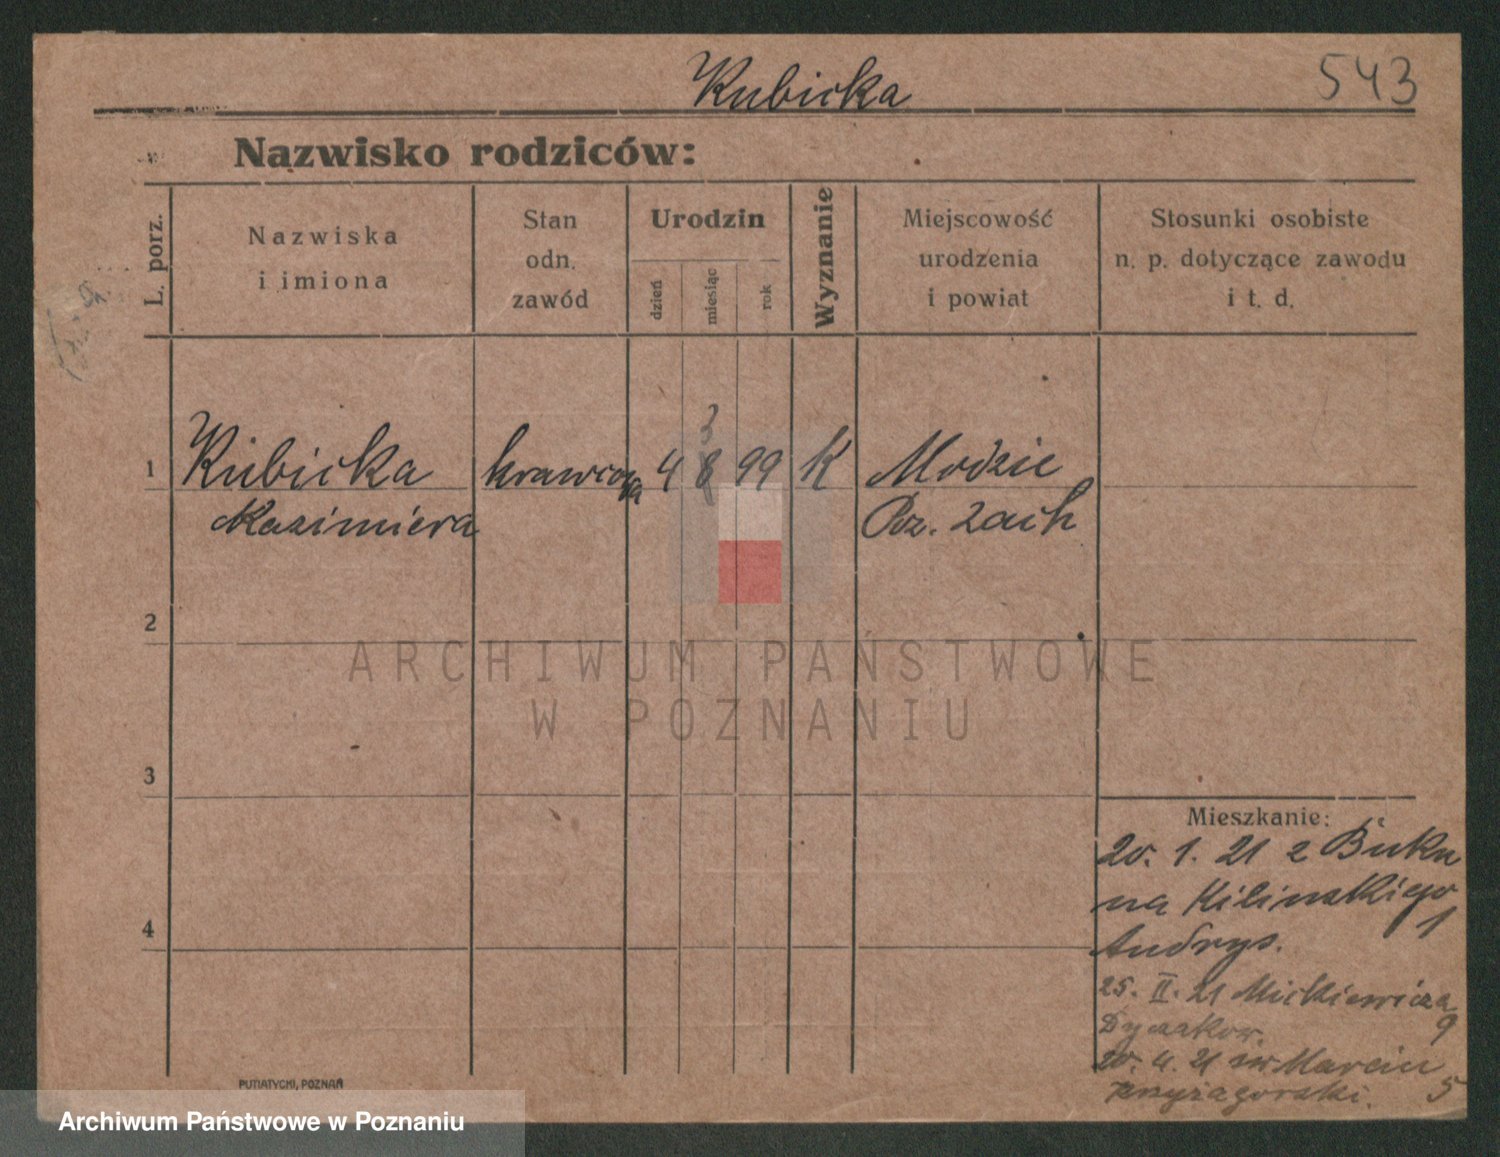 Kubicka
543
Nazwisko rodziców:
L. porz.
Nazwiska
i imiona
Stan
odn.
zawód
Urodzin
dzień
miesiąc
rok
Wyznanie
Miejscowość
urodzenia
i powiat
Stosunki osobiste
n. p. dotyczące zawodu
i t. d.
1
Kubicka
Kazimiera
krawcowa
4
8
3
99
K
Modzie
Poz. Zach
2
3
4
Mieszkanie:
20. 1. 21 z Buku
na Kilinskiego
1
Andrys.
25. II. 21 Mickiewicza
9
20. 4. 21 św. Marcin
5
Przyzagorski.
PUTIATYCKI, POZNAŃ
ARCHIWUM PAŃSTWOWE
W POZNANIU
Archiwum Państwowe w Poznaniu